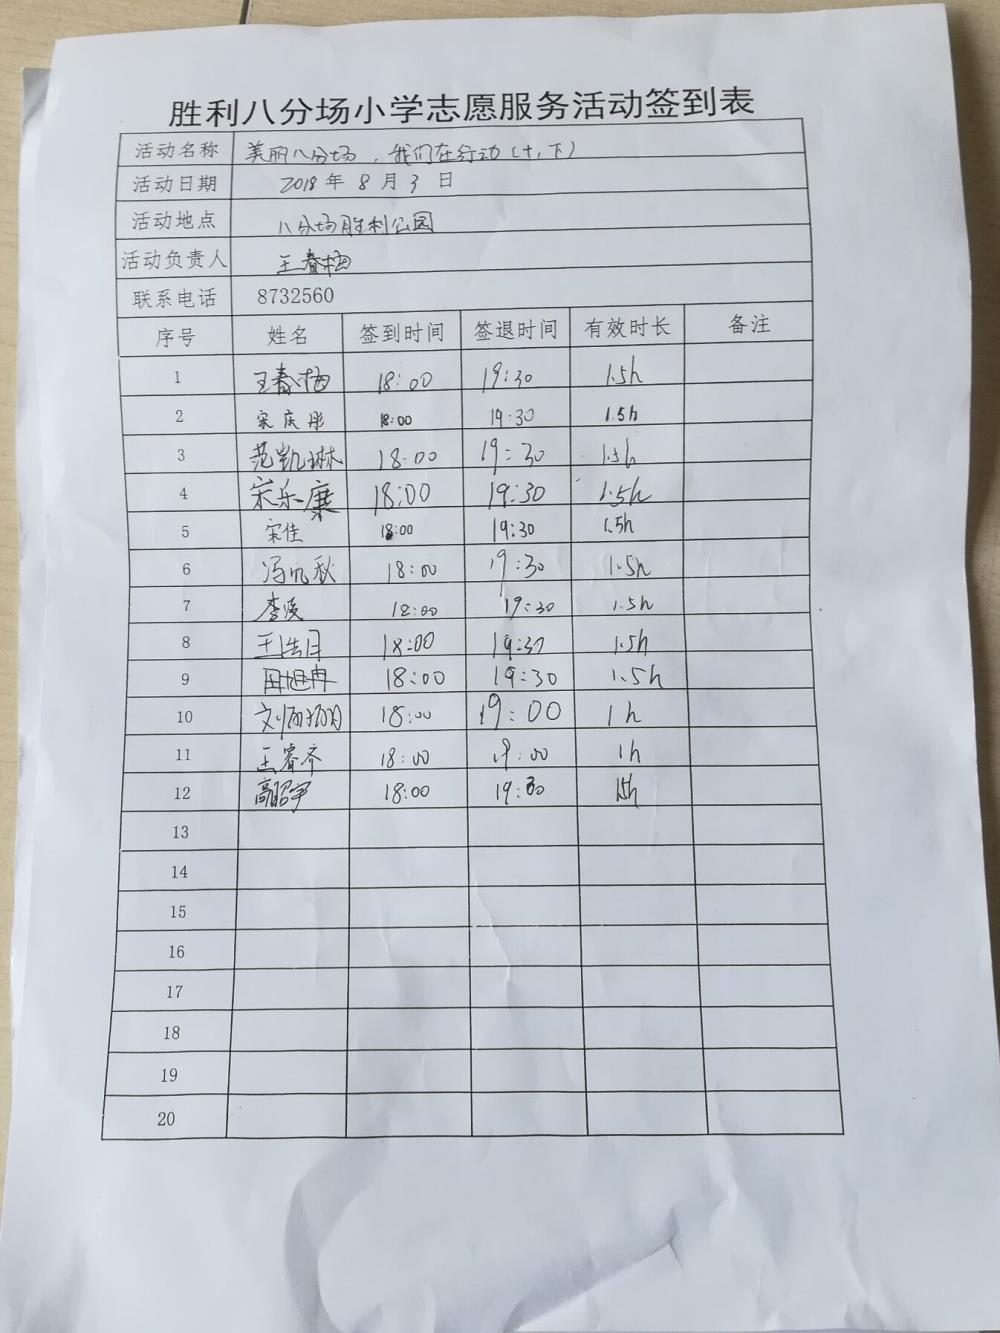 胜利八分场小学志愿服务活动签到表
活动名称 美丽八分场，我们在行动（十、下）
活动日期 2018 年 8 月 3 日
活动地点 八分场胜利公园
活动负责人 王春梅
联系电话 8732560
序号 姓名 签到时间 签退时间 有效时长 备注
1 王春梅 18:00 19:30 1.5h
2 宋庆彤 18:00 19:30 1.5h
3 范凯琳 18:00 19:30 1.5h
4 宋乐廉 18:00 19:30 1.5h
5 宋佳 18:00 19:30 1.5h
6 冯 秋 18:00 19:30 1.5h
7 李 18:00 19:30 1.5h
8 王浩月 18:00 19:30 1.5h
9 田旭冉 18:00 19:30 1.5h
10 刘 18:00 19:00 1h
11 王睿齐 18:00 19:00 1h
12 高昭宇 18:00 19:30 1.5h
13
14
15
16
17
18
19
20